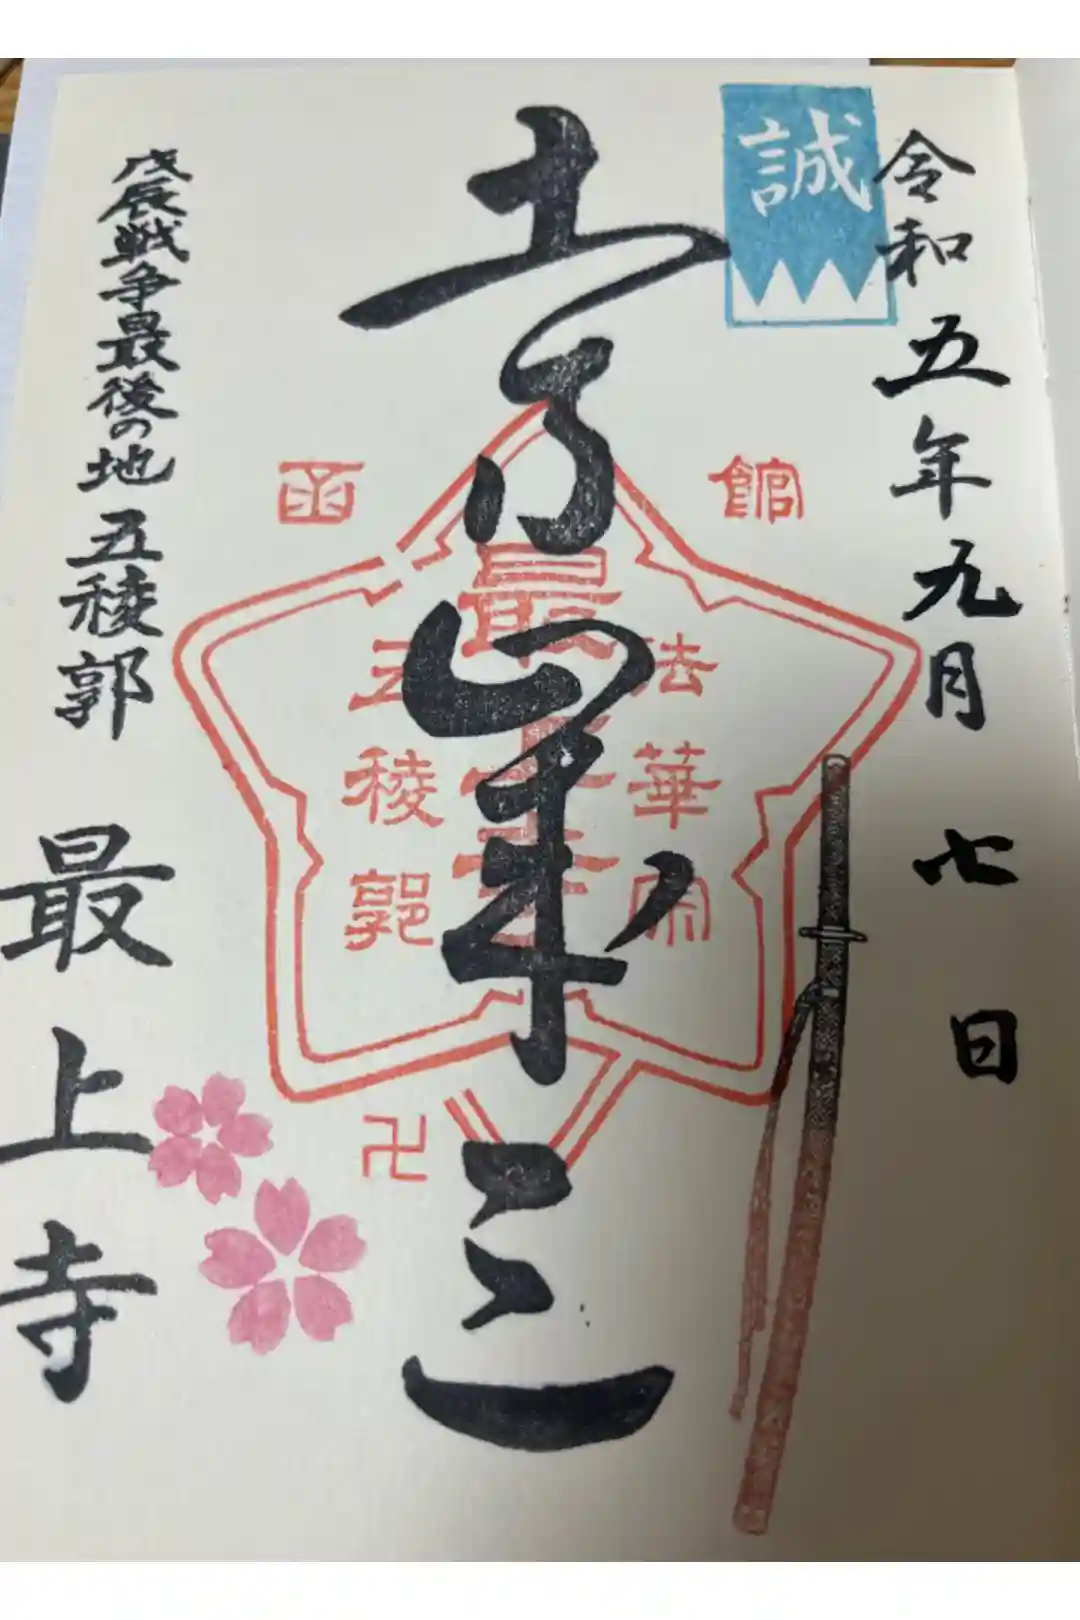 令和五年九月七日
誠
土方歳三
函館
法華宗
最上寺
五稜郭
卍
戊辰戦争最後の地 五稜郭
最上寺